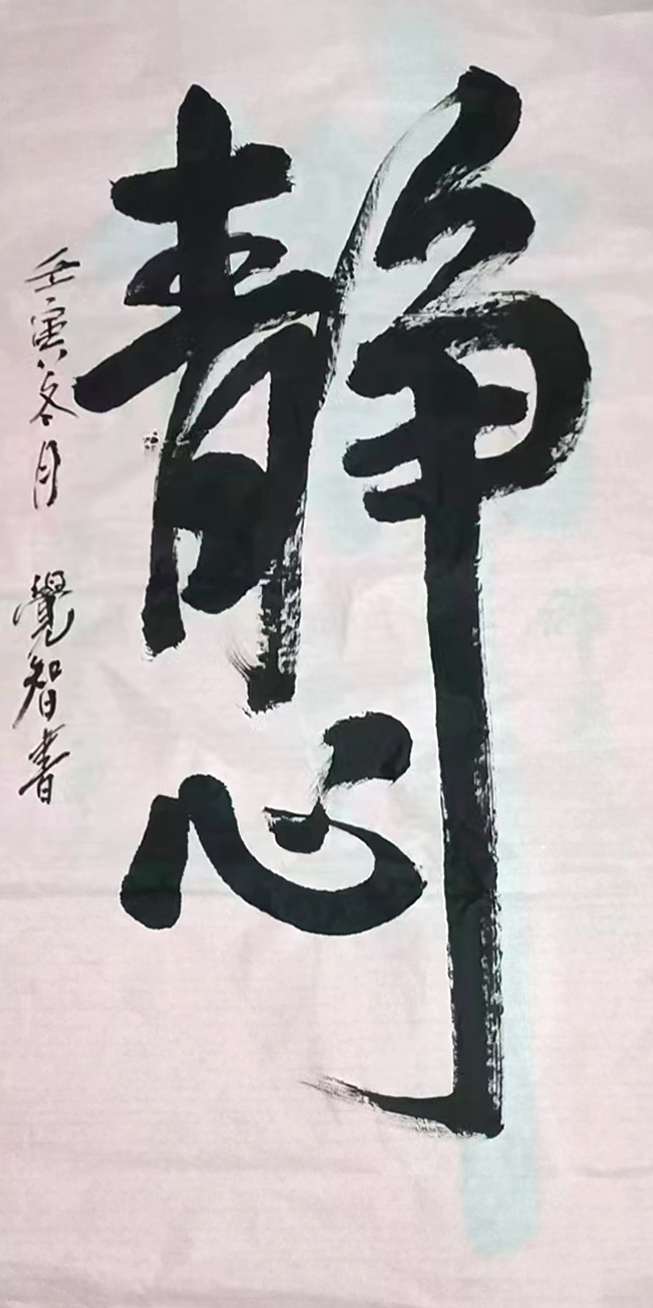 靜心
壬寅冬月 覺智書